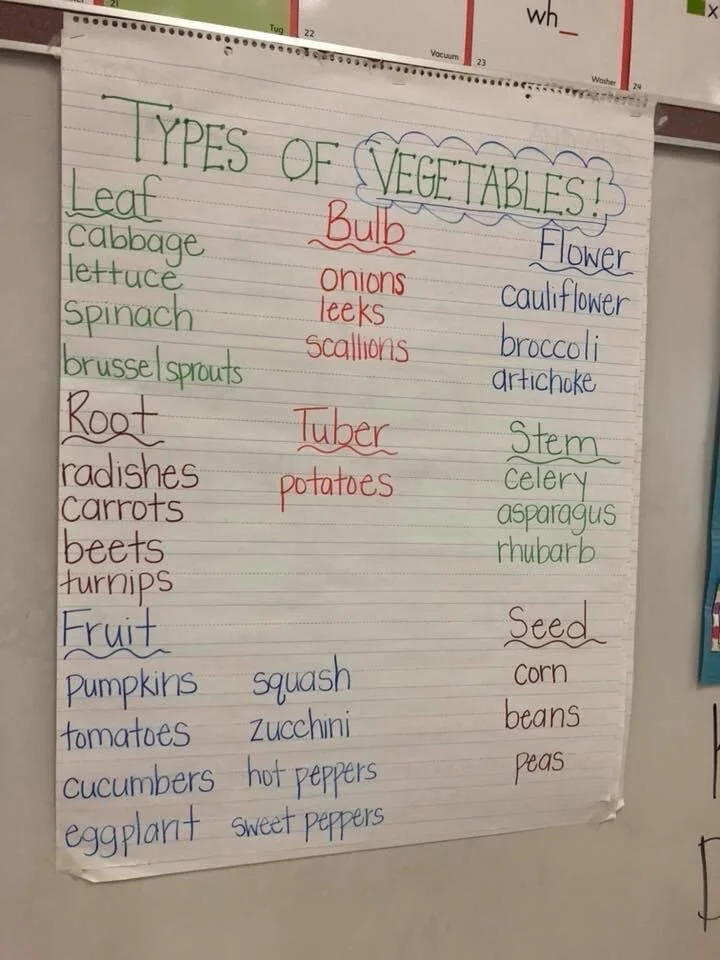 21
Tug
22
Vacuum
23
wh_
Washer
24
x
TYPES OF VEGETABLES!
Leaf
cabbage
lettuce
spinach
brussel sprouts
Bulb
onions
leeks
scallions
Flower
cauliflower
broccoli
artichoke
Root
radishes
carrots
beets
turnips
Tuber
potatoes
Stem
celery
asparagus
rhubarb
Fruit
pumpkins squash
tomatoes zucchini
cucumbers hot peppers
eggplant sweet peppers
Seed
corn
beans
peas